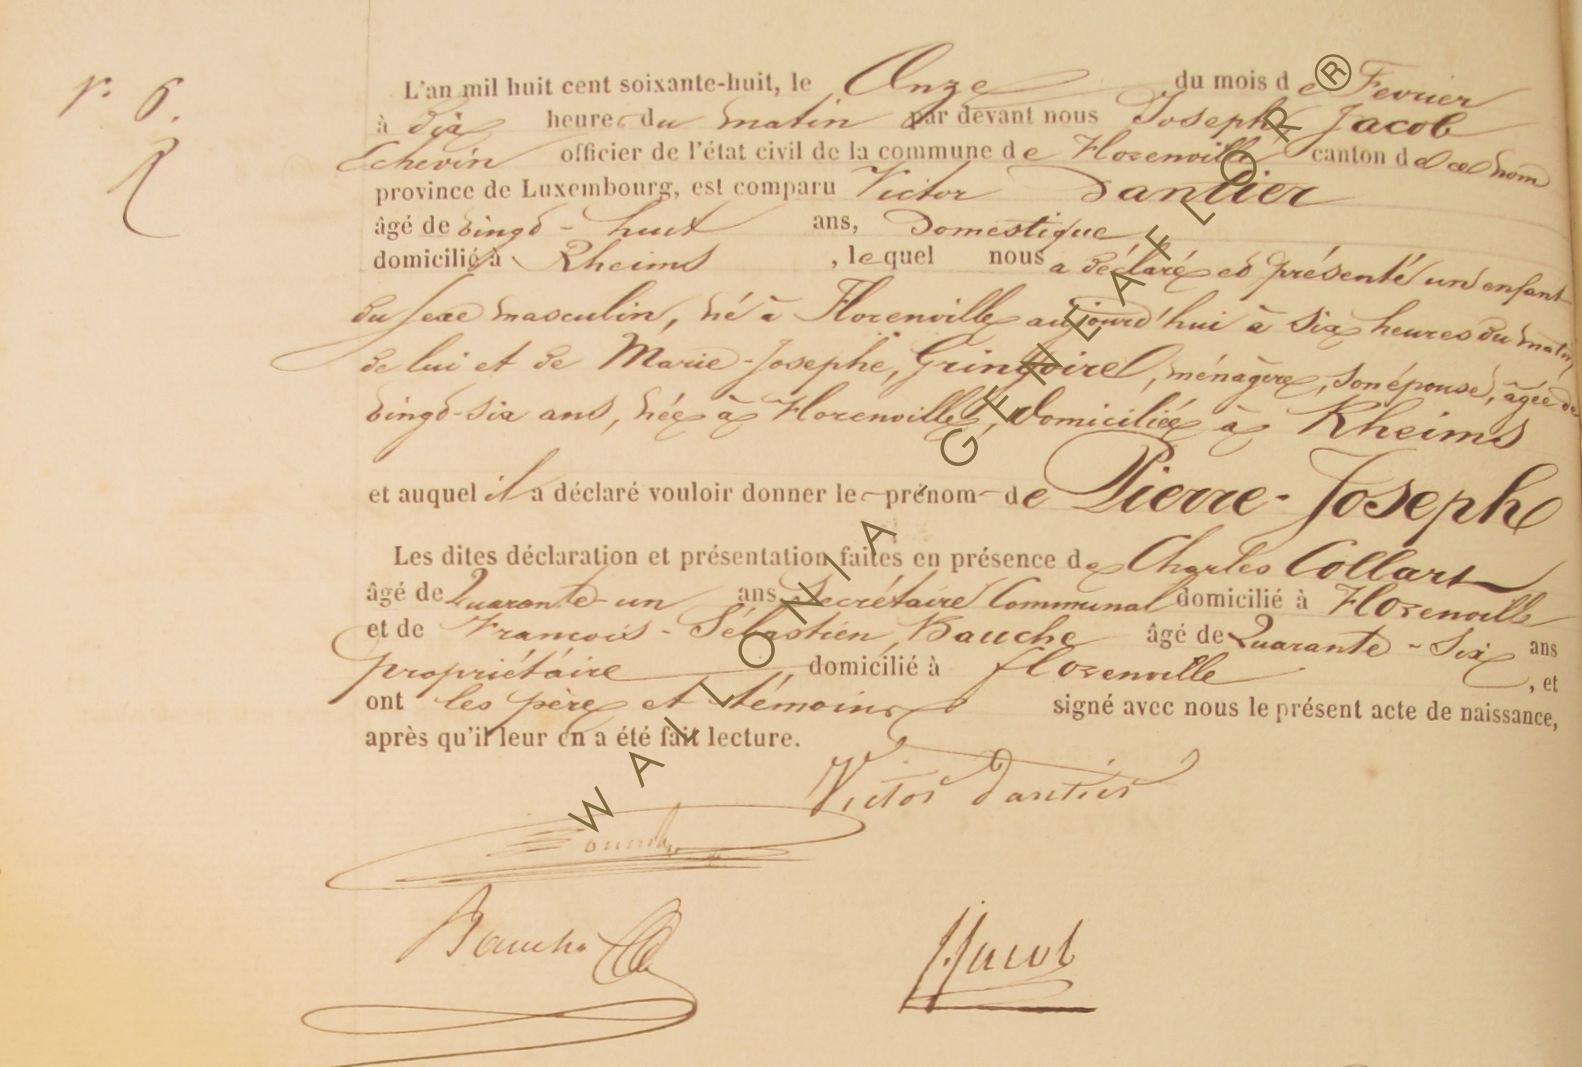 n.º 6.
L'an mil huit cent soixante-huit, le Onze du mois de Fevrier
à dix heures du matin par devant nous Joseph Jacob
Echevin officier de l'état civil de la commune de Florenville canton de ce nom
province de Luxembourg, est comparu Victor Dantier
âgé de vingt-huit ans, Domestique
domicilié à Rheims, lequel nous a déclaré et présenté un enfant
du sexe masculin, né à Florenville aujourd'hui à six heures du matin,
de lui et de Marie-Josephe, Gringoirel, ménagère, son épouse, âgée de
vingt-six ans, née à Florenville, domiciliée à Rheims
et auquel il a déclaré vouloir donner le prénom de Pierre-Joseph
Les dites déclaration et présentation faites en présence de Charles Collart
âgé de Quarante-un ans Secrétaire Communal domicilié à Florenville
et de François-Sébastien, Bauche âgé de Quarante-Six ans
propriétaire domicilié à florenville, et
ont les père et témoins signé avec nous le présent acte de naissance,
après qu'il leur en a été fait lecture.
Victor dantier
Bauche
J. Jacob
WALLONIA GENEAFLOR®